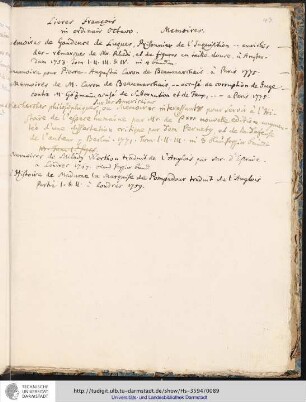 Livres François
in ordinair Octavo.
Memoires.
Memoires de Gaudence de Luques, Prisonnier de l'Inquisition - enrichis
des remarques de Mr. Rhedi et de figures en taille douce, à Amster-
dam 1753. Tom I. II. III. & IV. in 4 bandes
Memoires pour Pierre Augustin Caron de Beaumarchais à Paris 1775.
Memoires de M. Caron de Beaumarchais - accusé de corruption de Juge
contre M. Goëzman accusé de Subornation et de faux, - - à Paris 1775
sur les Americains
Recherches philosophiques ou Memoires interessants pour servir à l'His-
toire de l'espece humaine par Mr. de Paw nouvelle edition augmen-
tée d'une dissertation critique par Dom Pernety et de la defense
de l'auteur à Berlin 1771. Tom I. II. III. in
Memoires de Milady traduit de l'Anglois par Mr.
à Londres
Histoire de Madame la Marquise de Pompadour traduit de l'Anglois
partie I. & II. à Londres 1759.
TECHNISCHE
UNIVERSITÄT
DARMSTADT
http://tudigit.ulb.tu-darmstadt.de/show/Hs-3594/0089
Universitäts- und Landesbibliothek Darmstadt